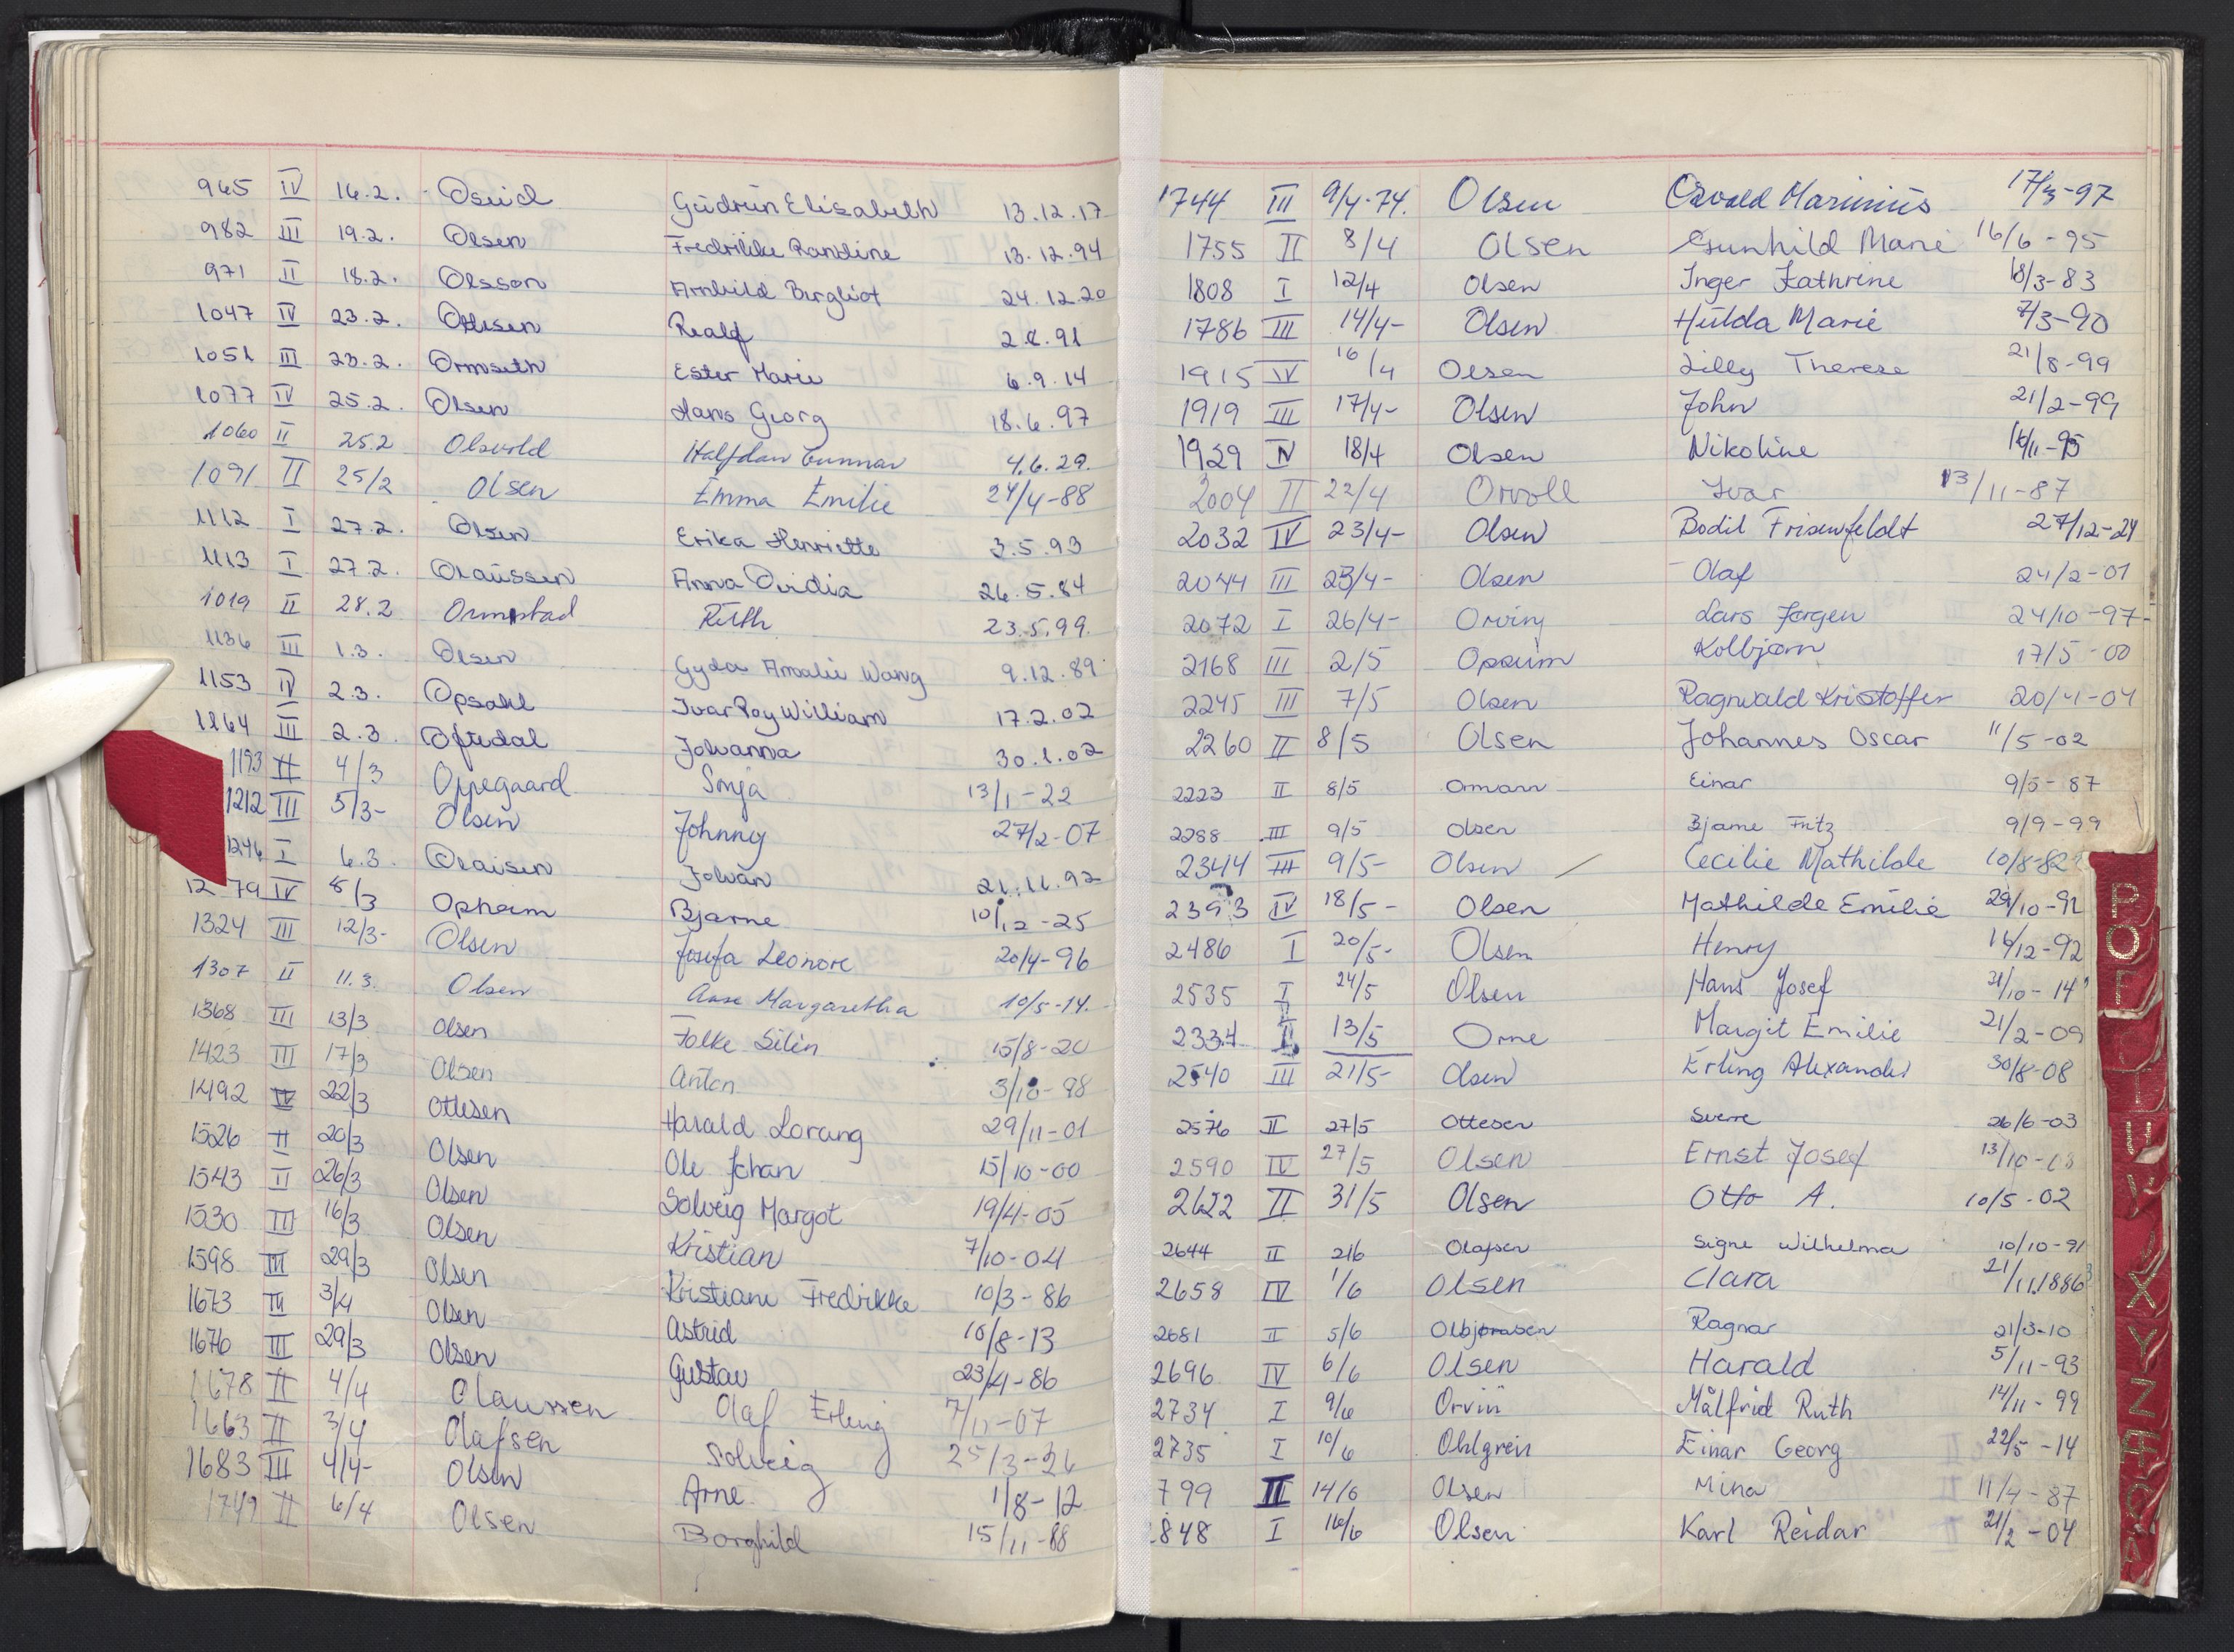 965 IV 16.2. Osuid Gudrun Elisabeth 13.12.17
982 III 19.2. Olsen Fredrikke Randine 13.12.94
971 II 18.2. Olsson Arnhild Bergliot 24.12.20
1047 IV 23.2. Ottesen Realf 2.8.91
1051 III 23.2. Ormseth Ester Marie 6.9.14
1077 IV 25.2. Olsen Hans Georg 18.6.97
1060 II 25.2 Olsvold Halfdan Gunnar 4.6.29.
1091 II 25/2 Olsen Emma Emilie 24/4-88
1112 I 27.2. Olsen Erika Henriette 3.5.93
1113 I 27.2. Olaussen Anna Ovidia 26.5.84
1019 II 28.2 Ormstad Ruth 23.5.99.
1136 III 1.3. Olsen Gyda Amalie Wang 9.12.89
1153 IV 2.3. Opsahl Ivar Roy William 17.2.02
1164 III 2.3. Oftedal Johanna 30.1.02
1193 II 4/3 Oppegaard Sonja 13/1-22
1212 III 5/3- Olsen Johnny 27/2-07
1246 I 6.3. Olaisen Johan 21.11.92
1279 IV 8/3 Opheim Bjarne 10/12-25
1324 III 12/3- Olsen Josefa Leonore 20/4-96
1307 II 11.3. Olsen Aase Margaretha 10/5-14.
1368 III 13/3 Olsen Folke Silén 15/8-20
1423 III 17/3 Olsen Anton 3/10-98
1492 IV 22/3 Ottesen Harald Lorang 29/11-01
1526 II 20/3 Olsen Ole Johan 15/10-00
1543 II 26/3 Olsen Solveig Margot 19/4-05
1530 III 16/3 Olsen Kristian 7/10-04
1598 III 29/3 Olsen Kristiane Fredrikke 10/3-86
1673 III 3/4 Olsen Astrid 10/8-13
1676 III 29/3 Olsen Gustav 23/4-86
1678 II 4/4 Olaussen Olaf Erling 7/11-07
1663 II 3/4 Olafsen Solveig 25/3-26
1683 III 4/4- Olsen Arne 1/8-12
1749 II 6/4 Olsen Borghild 15/11-88
1744 III 9/4-74. Olsen Osvald Marinius 17/3-97
1755 II 8/4 Olsen Gunhild Marie 16/6-95
1808 I 12/4 Olsen Inger Kathrine 18/3-83
1786 III 14/4- Olsen Hulda Marie 7/3-90
1915 IV 16/4 Olsen Lilly Therese 21/8-99
1919 III 17/4- Olsen John 21/2-99
1929 IV 18/4 Olsen Nikoline 16/11-95
2004 II 22/4 Orvoll Ivar 13/11-87
2032 IV 23/4- Olsen Bodil Frisenfeldt 27/12-24
2044 III 23/4- Olsen Olaf 24/2-01
2072 I 26/4- Orving Lars Jørgen 24/10-97-
2168 III 2/5 Opsum Kolbjørn 17/5-00
2245 III 7/5 Olsen Ragnvald Kristoffer 20/4-04
2260 II 8/5 Olsen Johannes Oscar 11/5-02
2223 II 8/5 Ormann Einar 9/5-87
2288 III 9/5 Olsen Bjarne Fritz 9/9-99
2344 III 9/5- Olsen Cecilie Mathilde 10/8-82
2393 IV 18/5- Olsen Mathilde Emilie 29/10-91
2486 I 20/5- Olsen Henry 16/12-92
2535 I 24/5 Olsen Hans Josef 31/10-14
2337 II 13/5 Orne Margit Emilie 21/2-09
2540 III 21/5- Olsen Erling Alexander 30/8-08
2576 II 27/5 Ottesen Sverre 26/6-03
2590 IV 27/5 Olsen Ernst Josef 13/10-03
2622 II 31/5 Olsen Otto A. 10/5-02
2644 II 2/6 Olafsen Signe Wilhelma 10/10-91
2658 IV 1/6 Olsen Clara 21/11.1886
2681 II 5/6 Olbjørnsen Ragnar 21/3-10
2696 IV 6/6 Olsen Harald 5/11-93
2734 I 9/6 Orvin Målfrid Ruth 14/11-99
2735 I 10/6 Ohlgren Einar Georg 22/5-14
799 III 14/6 Olsen Mina 11/4-87
848 I 16/6 Olsen Karl Reidar 21/2-04
P
O
V
X
Y
Z
Æ
Ø